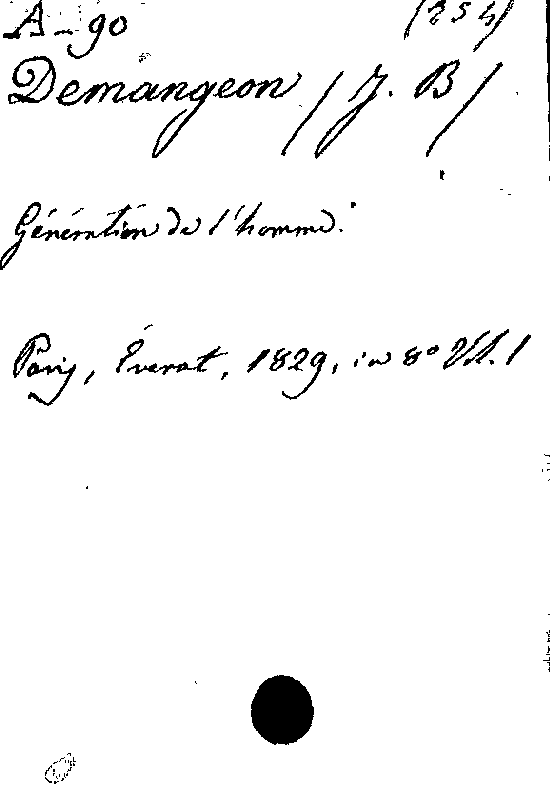 A-90 (254)
Demangeon (J. B)
Génération de l'homme.
Paris, Éverat, 1829, in 8° Vol. 1